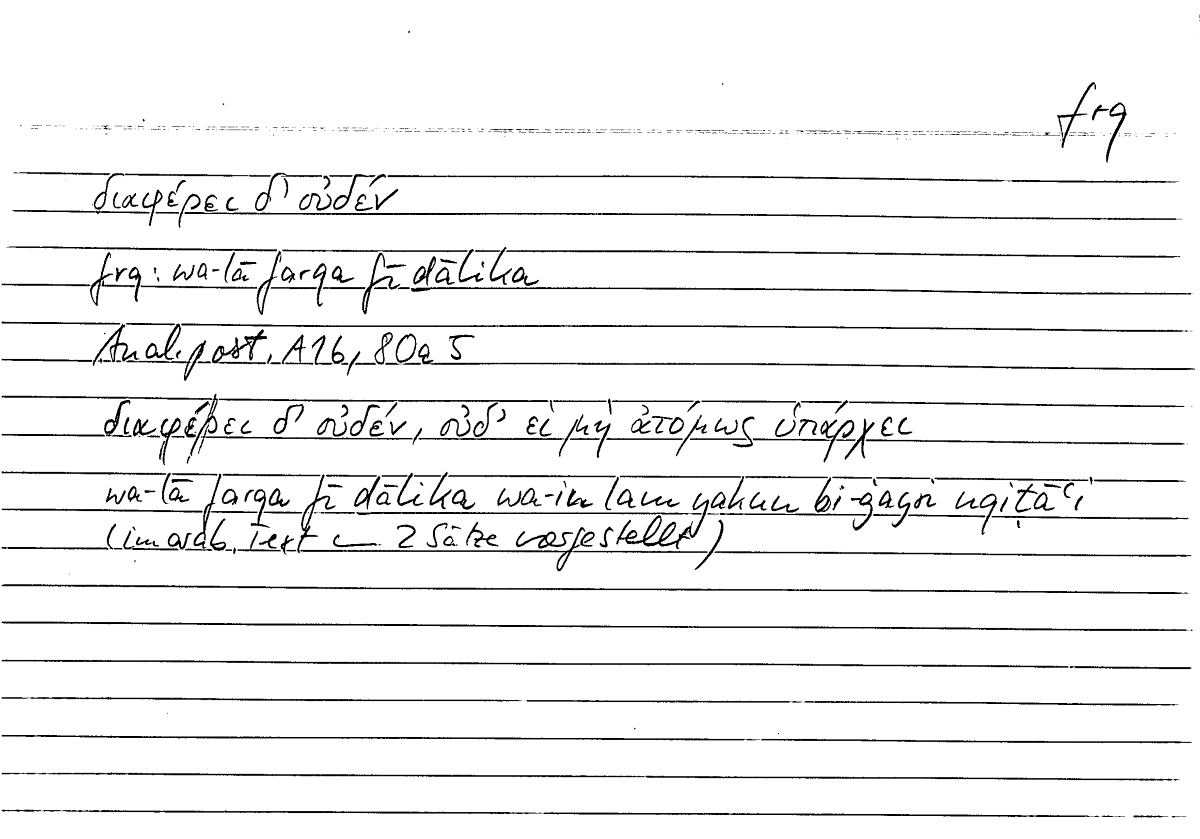 frq
διαφέρει δ' οὐδέν
frq: wa-lā farqa fī ḏālika
Anal. post. A16, 80a 5
διαφέρει δ' οὐδέν, οὐδ' εἰ μὴ ἀτόμως ὑπάρχει
wa-lā farqa fī ḏālika wa-in lam yakun bi-ġayri nqiṭāʿi
(im arab. Text 2 Sätze vorgestellt)